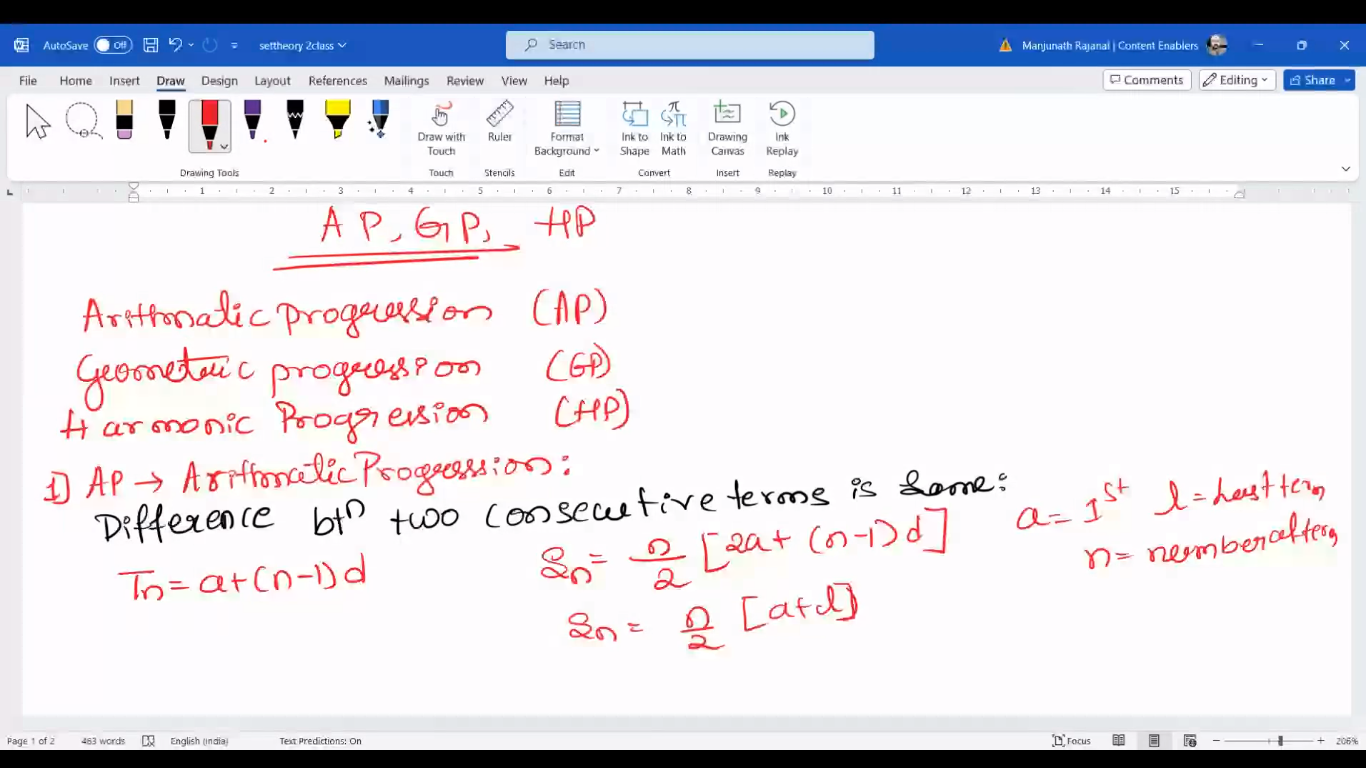 AutoSave Off settheory 2class Search Manjunath Rajanal | Content Enablers
File Home Insert Draw Design Layout References Mailings Review View Help Comments Editing Share
Draw with Touch Ruler Format Background Ink to Shape Ink to Math Drawing Canvas Ink Replay
Drawing Tools Touch Stencils Edit Convert Insert
1 2 3 4 5 6 7 8 9 10 11 12 13 14 15
AP, GP, HP
Arithmatic progression (AP)
Geometric progression (GP)
Harmonic Progression (HP)
1] AP → Arithmatic Progression:
Difference btn two consecutive terms is Same:
a = 1st l = Last term
n = number of term
Tn = a+(n-1)d
Sn = n/2 [2a+(n-1)d]
Sn = n/2 [a+l]
Page 1 of 2 463 words English (India) Text Predictions: On Focus 206%